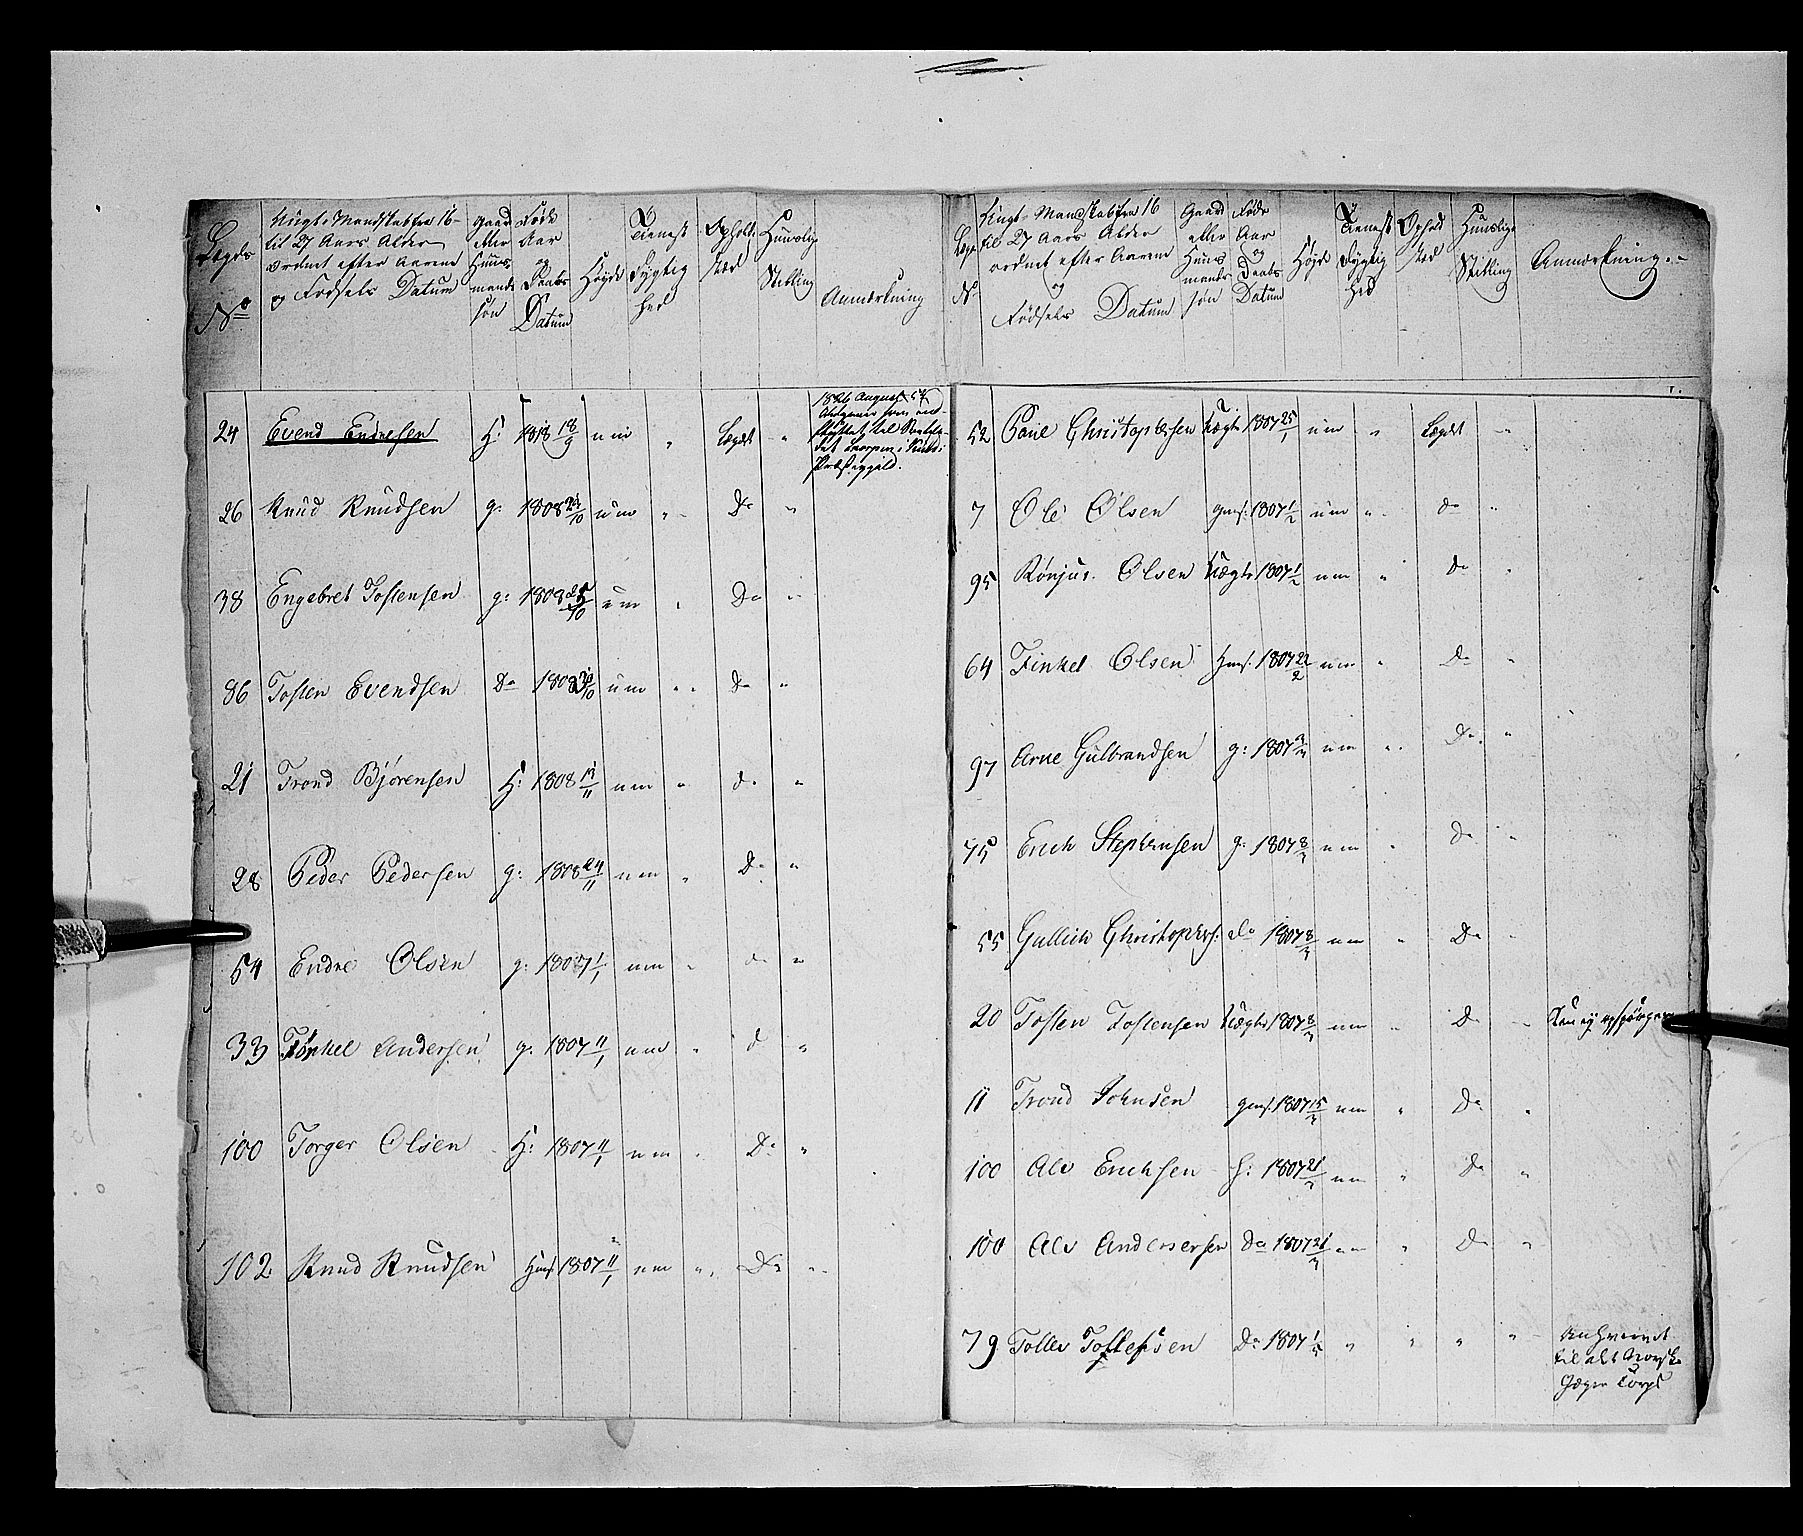 Lægds No
Ungt Mandskab fra 16
til 27 Aars Alder
ordnet efter Aarene
og Fødsels Datum
Gaard
eller
Huus
mands
søn
Føde
Aar
og
Daabs
Datum
Høyde
Tieneste
Dygtig
hed
Opholds
sted
Huuslige
Stilling
Anmærkning
24 Evend Endresen H: 1808 18/9 um " Lægdet "
1826 August
26 Knud Knudsen g: 1808 /10 um " Do "
38 Engebret Tostensen g: 1808 25/10 um " Do "
86 Tosten Evendsen Do 1808 /10 um " Do "
21 Trond Bjørensen H: 1808 /11 um " do "
28 Peder Pedersen g: 1808 24/11 um " Do "
54 Endre Olsen g: 1807 1/1 um " do "
33 Tørkel Andersen g: 1807 11/1 um " d "
100 Torger Olsen H: 1807 11/1 um " Do "
102 Knud Knudsen Hmsf 1807 11/1 um " Do "
Lægds No
Ungt Mandskab fra 16
til 27 Aars Alder
ordnet efter Aarene
og
Fødsels Datum
Gaard
eller
Huus
mands
søn
Føde
Aar
og
Daabs
Datum
Høyde
Tieneste
Dygtig
hed
Ophold
sted
Huuslige
Stilling
Anmærkning
52 Paul Christophersen Uægte 1807 25/1 um " Lægdet "
7 Ole Olsen gmsf: 1807 1/2 um " do "
95 Rønjus Olsen Uægte 1807 1/2 um " Do "
64 Tinkel Olsen Hmsf: 1807 22/2 um " Do "
97 Arne Gulbrandsen g: 1807 um " Do "
75 Erich Stephensen g: 1807 8/3 um " Do "
55 Gullich Christophers: do 1807 8/3 um " Do "
20 Tosten Tostensen Uægte 1807 8/3 um " Do " Kan ej opspørges
11 Trond Johnsen gmsf: 1807 15/3 um " Do "
100 Alv Erichsen H: 1807 21/3 um " Do "
100 Alv Andersersen Do 1807 21/3 um " Do "
79 Tollev Tollefsen Do 1807 " " " "
Anhvervet
til det Norske
Jæger Corps